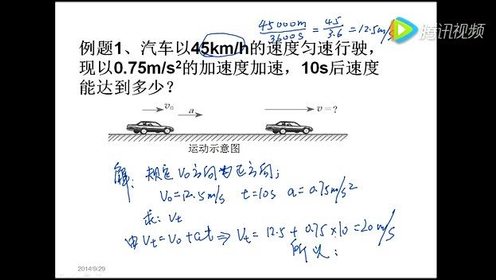 45000m/3600s = 45/3.6 = 12.5m/s
腾讯视频
例题1、汽车以45km/h的速度匀速行驶，
现以0.75m/s²的加速度加速，10s后速度
能达到多少？
v₀ a v=?
运动示意图
解：规定v₀方向为正方向；
v₀=12.5m/s t=10s a=0.75m/s²
求：vt
由vt=v₀+at⇒vt=12.5+0.75×10=20m/s
所以：
2014/9/29